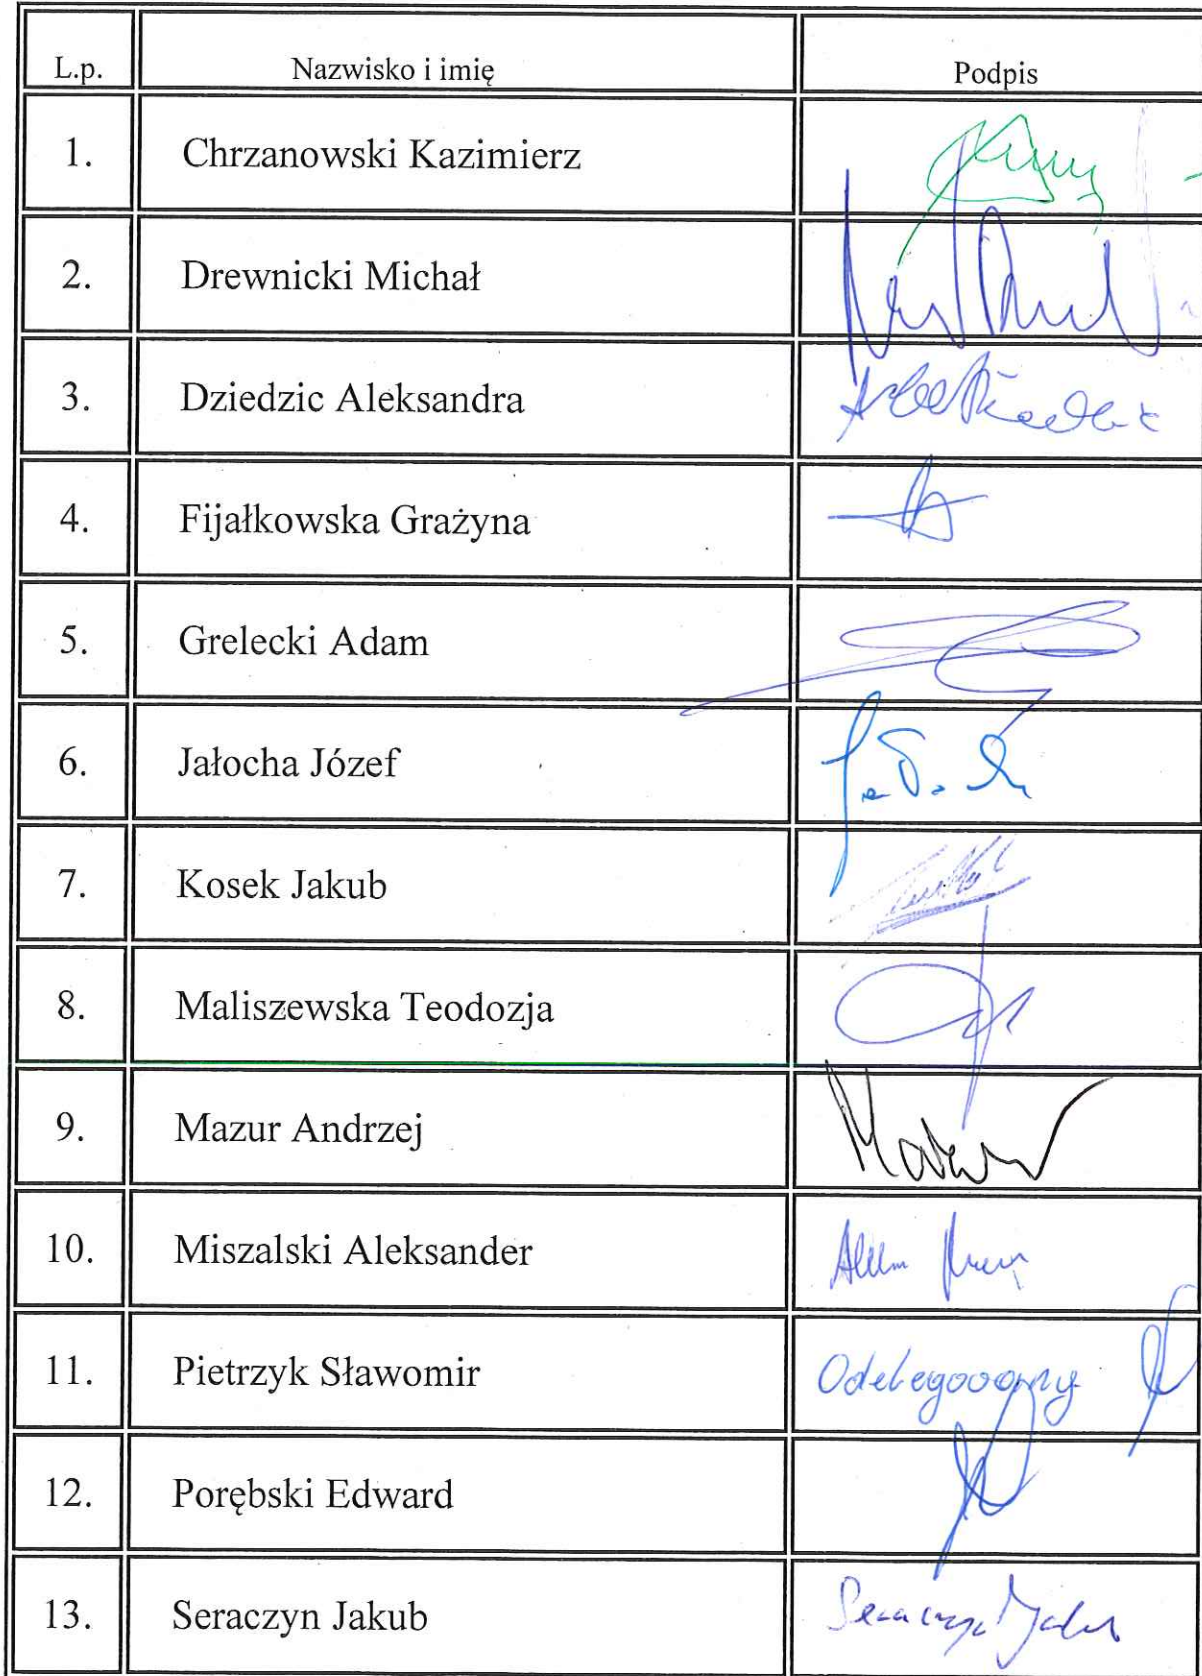 L.p. Nazwisko i imię Podpis
1. Chrzanowski Kazimierz
2. Drewnicki Michał
3. Dziedzic Aleksandra
4. Fijałkowska Grażyna
5. Grelecki Adam
6. Jałocha Józef
7. Kosek Jakub
8. Maliszewska Teodozja
9. Mazur Andrzej Mazur
10. Miszalski Aleksander
11. Pietrzyk Sławomir
12. Porębski Edward
13. Seraczyn Jakub Seraczyn Jakub